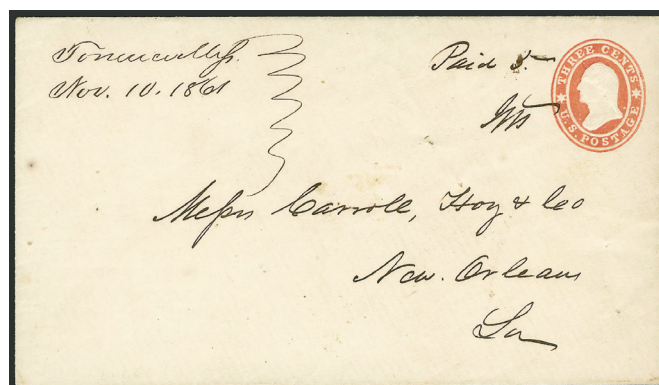 Nov. 10. 1861
Paid 5
THREE CENTS
U.S. POSTAGE
Messrs Carroll, Hoy & Co
New. Orleans
La